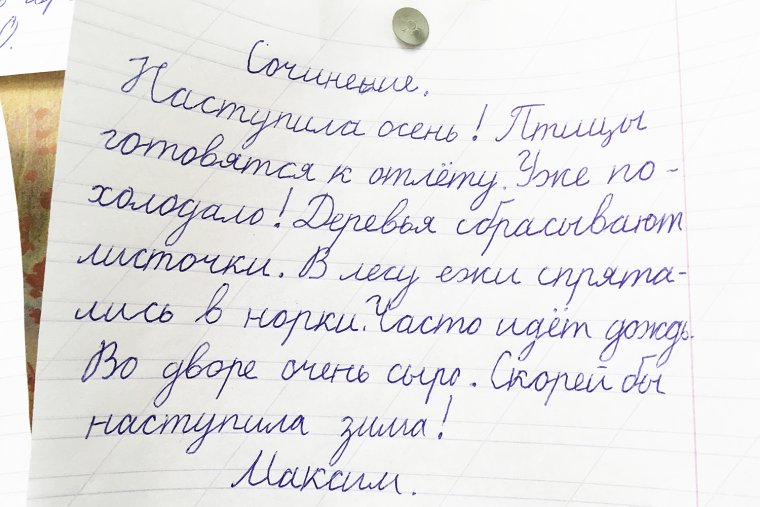 Сочинение.
Наступила осень! Птицы
готовятся к отлёту. Уже по-
холодало! Деревья сбрасывают
листочки. В лесу ежи спрята-
лись в норки. Часто идёт дождь.
Во дворе очень сыро. Скорей бы
наступила зима!
Максим.